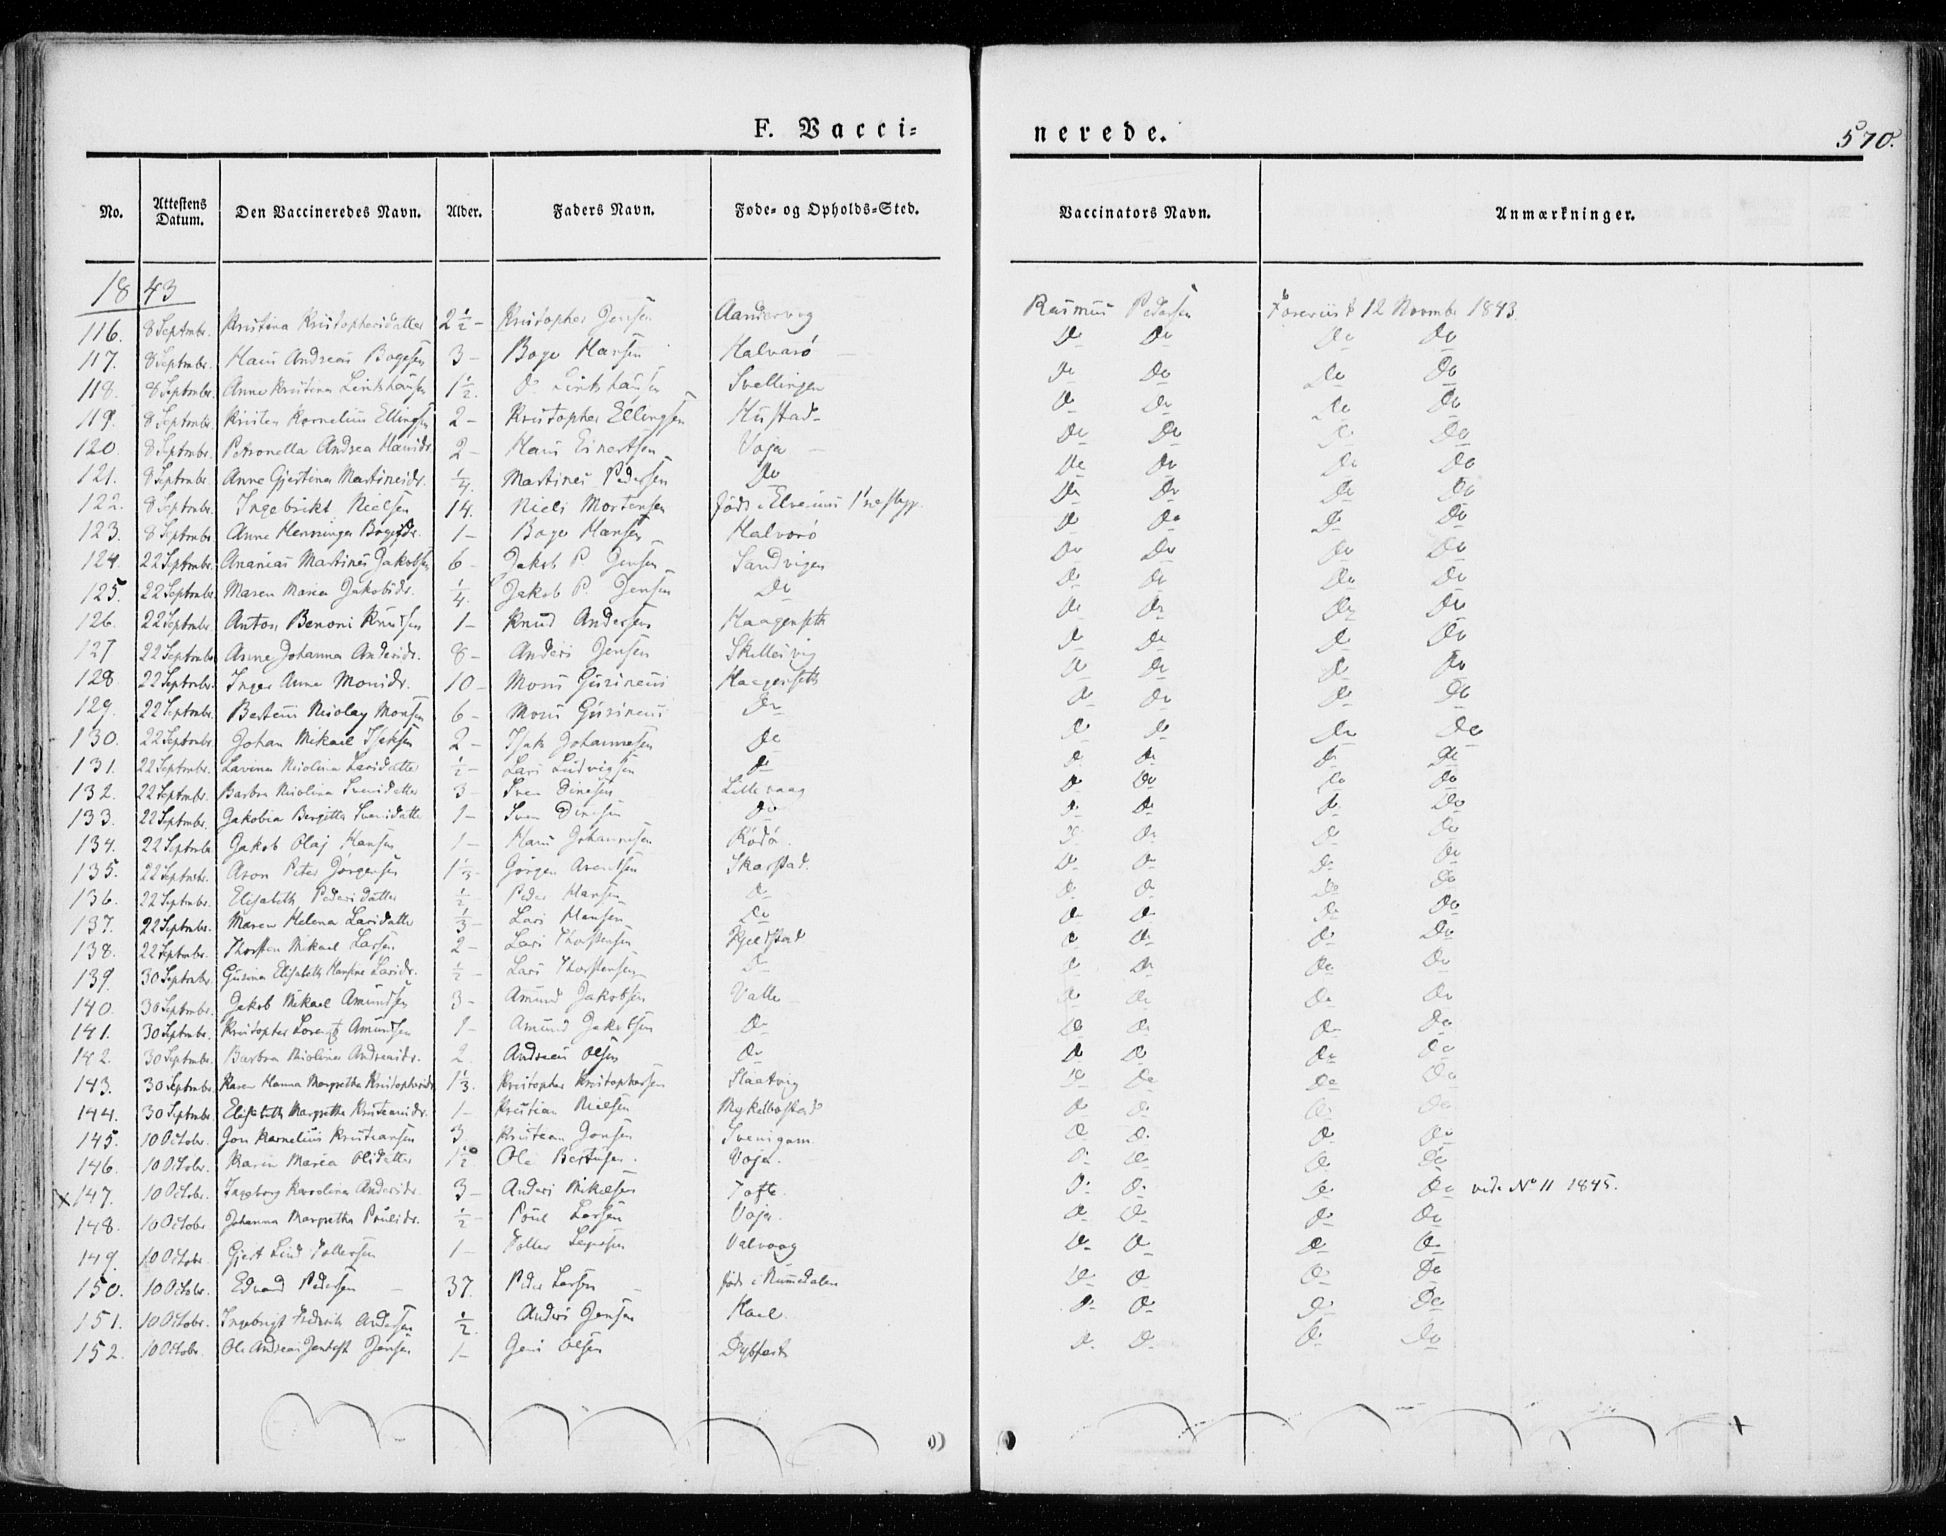 F. Vacci=
nerede.
570.
No. Attestens Datum. Den Vaccineredes Navn. Alder. Faders Navn. Føde= og Opholds=Sted. Vaccinators Navn. Anmærkninger.
1843
116. 8 Septmbr. Kristina Kristophersdatter 2 1/2 - Kristopher Jensen Rasmus Pedersen Foreviist 12 Novmbr 1843.
117. 8 Septmbr. Hans Andreas Bogesen 3 - Boge Hansen Halvarø Do Do Do Do
118. 8 Septmbr. Anne Kristina 1 1/2. Svellingen Do Do Do Do
119. 8 Septmbr. Kristen Kornelius Ellingsen 2 - Kristopher Ellingsen Hustad Do Do Do Do
120. 8 Septmbr. Petronella Andrea Hansdr. 2 - Hans Einertsen Vaja Do Do Do Do
121. 8 Septmbr Anne Gjertina Martinesdr. 1/4. Martines Pedersen Do Do Do Do Do
122. 8 Septmbr. Ingebrikt Nielsen 14. Niels Mortensen født i Elverums Do Do Do Do
123. 8 Septmbr Anne Henninga Bogesdr. 1 - Boge Hansen Halvarø Do Do Do Do
124. 22 Septmbr. Ananias Martines Jakobsen 6 - Jakob P. Jensen Sandvigen Do Do Do Do
125. 22 Septmbr. Maren Maria Jakobsdr. 1/4. Jakob P. Jensen Do Do Do Do Do
126. 22 Septmbr. Anton Benoni Knudsen 1 - Knud Andersen Haagenseth Do Do Do Do
127 22 Septmbr Anne Johanna Andersdr. 8 - Anders Jensen Skillesvig Do Do Do Do
128 22 Septmbr. Inger Anna Monsdr. 10 - Mons Gusineus Haagenseth Do Do Do Do
129. 22 Septmbr. Berteus Nicolay Monsen 6 - Mons Gusineus Do Do Do Do Do
130. 22 Septmbr. Johan Mikael Isaksen 2 - Isak Johannesen Do Do Do Do Do
131. 22 Septmbr. Lavina Nicolina Larsdatter 1/2 - Lars Ludvigsen Do Do Do Do Do
132. 22 Septmbr. Barbra Nicolina Svensdatter 3 - Sven Dinesen Lillevaag Do Do Do Do
133. 22 Septmbr. Jakobia Bergitta Svensdatter 1 - Sven Dinesen Do Do Do Do Do
134. 22 Septmbr Jakob Olaj Hansen 1 - Hans Johannesen Rødø. Do Do Do Do
135. 22 Septmbr. Aron Peter Jørgensen Jørgen Arentsen Skarstad. Do Do Do Do
136. 22 Septmbr. Elisabeth Pedersdatter 1/2 - Peder Hansen Do Do Do Do Do
137. 22 Septmbr. Maren Helena Larsdatter 1/3 - Lars Hansen Do Do Do Do Do
138. 22 Septmbr. Thorsten Mikael Larsen 2 - Lars Thorstensen Kjeldstad Do Do Do Do
139. 30 Septmbr. Gusina Elisabeth Larsdr. 1/2 - Lars Thorstensen Do Do Do Do Do
140. 30 Septmbr. Jakob Mikael Amundsen 3 - Amund Jakobsen Valle Do Do Do Do
141. 30 Septmbr. Kristopher Lorentz Amundsen 1 - Amund Jakobsen Do Do Do Do Do
142. 30 Septmbr. Barbra Nicolina Andreasdr. 2. Andreas Olsen Do Do Do Do Do
143. 30 Septmbr. Karen Hanna Margretha Kristophersdr 1 1/3. Kristopher Kristophersen Slaatvig Do Do Do Do
144. 30 Septmbr Elisabeth Margretha Kristiansdr. 1 - Kristian Nielsen Myklebostad Do Do Do Do
145. 10 Octobr. Jon Kornelius Kristiansen 3. Kristian Jonsen Do Do Do Do
146. 10 Octobr. Karin Maria Olsdatter 1 1/2 Ole Vaja. Do Do Do Do
x 147. 10 Octobr. Ingeborg Karolina Andersdr. 3 - Anders Mikelsen Tofte. Do Do Do Do vide No 11 1845.
148. 10 Octobr. Johanna Margretha Poulsdr. 1/2 - Poul Larsen Vaja. Do Do Do Do
149. 10 Octobr. Gjert Lind Tollersen 1 - Toller Valvaag Do Do Do Do
150. 10 Octobr. Edvard Pedersen 37. Peder Larsen født i Numedalen Do Do Do Do
151. 10 Octobr. Ingebrigt Fredrik Andersen 1/2. Anders Jensen Do Do Do Do
152. 10 Octobr. Ole Andreas Jensen 1 - Jens Olsen Dybfest Do Do Do Do